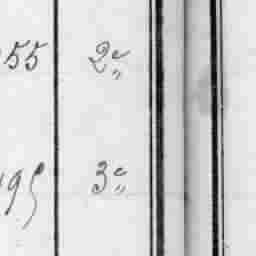 55 2e
195 3e